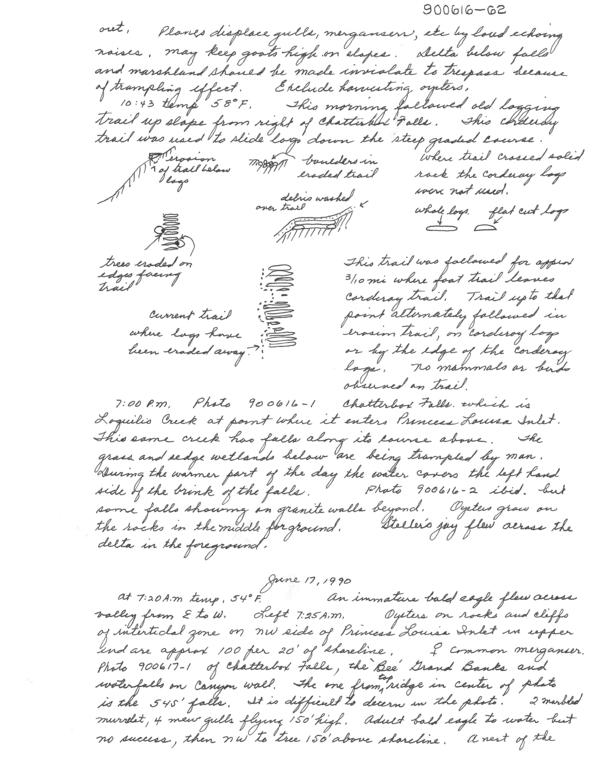 900616-62
out. Planes displace gulls, mergansers, etc by loud echoing
noises, may keep goats high on slopes. Delta below falls
and marshland should be made inviolate to trespass because
of trampling effect. Exclude harvesting oysters.
10:43 temp 58°F. This morning followed old logging
trail up slope from right of Chatterbox Falls. This corduroy
trail was used to slide logs down the steep graded course.
erosion
of trail below
logs
boulders in
eroded trail
where trail crossed solid
rock the corduroy logs
were not used.
debris washed
over trail
whole logs. flat cut logs
trees eroded on
edges facing
trail
current trail
where logs have
been eroded away.
This trail was followed for approx
3/10 mi where foot trail leaves
corduroy trail. Trail up to that
point alternately followed in
erosion trail, on corduroy logs
or by the edge of the corduroy
logs. No mammals or birds
observed on trail.
7:00 P.M. Photo 900616-1 Chatterbox Falls which is
Loquilts Creek at point where it enters Princess Louisa Inlet.
This same creek has falls along its course above. The
grass and sedge wetlands below are being trampled by man.
During the warmer part of the day the water covers the left hand
side of the brink of the falls. Photo 900616-2 ibid. but
some falls showing on granite walls beyond. Oysters grow on
the rocks in the middle forground. Steller's jay flew across the
delta in the foreground.
June 17, 1990
at 7:20 A.m temp. 54°F. An immature bald eagle flew across
valley from E to W. Left 7:25 A.M. Oysters on rocks and cliffs
of intertidal zone on NW side of Princess Louisa Inlet in upper
end are approx 100 per 20' of shoreline. ♀ common merganser.
Photo 900617-1 of Chatterbox Falls, the "Bee" Grand Banks and
waterfalls on Canyon wall. The one from top ridge in center of photo
is the 545' falls. It is difficult to discern in the photo. 2 marbled
murrelet, 4 mew gulls flying 150' high. Adult bald eagle to water but
no success, then NW to tree 150' above shoreline. A nest of the